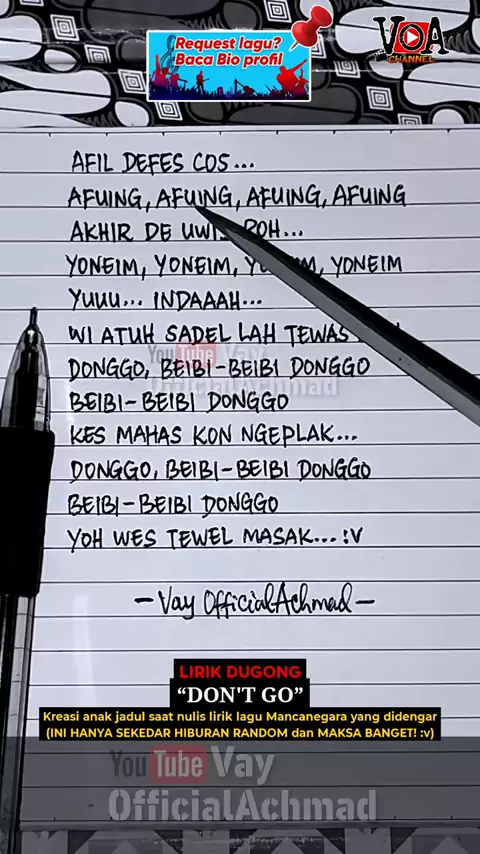 Request lagu?
Baca Bio profil
VOA
CHANNEL
AFIL DEFES COS...
AFUING, AFUING, AFUING, AFUING
AKHIR DE UWIS ROH...
YONEIM, YONEIM, YONEIM, YONEIM
YUUU... INDAAAH...
WI ATUH SADEL LAH TEWAS
DONGGO, BEIBI-BEIBI DONGGO
BEIBI-BEIBI DONGGO
KES MAHAS KON NGEPLAK...
DONGGO, BEIBI-BEIBI DONGGO
BEIBI-BEIBI DONGGO
YOH WES TEWEL MASAK... :V
YouTube Vay
OfficialAchmad
-Vay OfficialAchmad-
LIRIK DUGONG
“DON'T GO”
Kreasi anak jadul saat nulis lirik lagu Mancanegara yang didengar
(INI HANYA SEKEDAR HIBURAN RANDOM dan MAKSA BANGET! :v)
YouTube Vay
OfficialAchmad